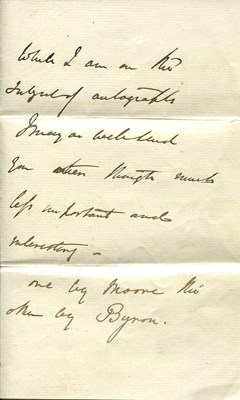 While I am on the
subject of autographs
I may as well send
you others though much
less important and
interesting –
one by Moore the
other by Byron.